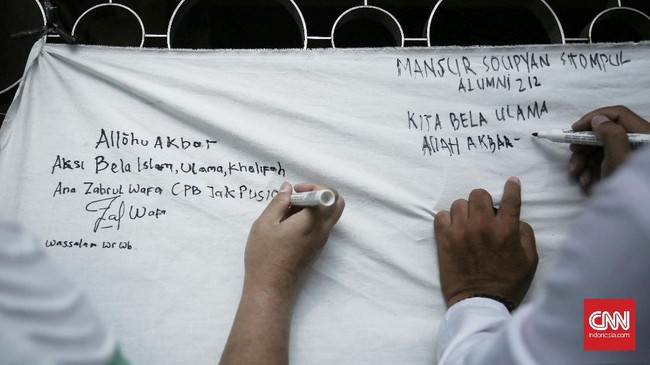 Allohu Akbar
Aksi Bela Islam, Ulama, Khalifah
Ana Zabrul Wafa CPB JakPus
Zaf Wafa
Wassalam wr wb
MANSUR SOUPYAN SITOMPUL
ALUMNI 212
KITA BELA ULAMA
ALLAH AKBAR
CNN
Indonesia.com